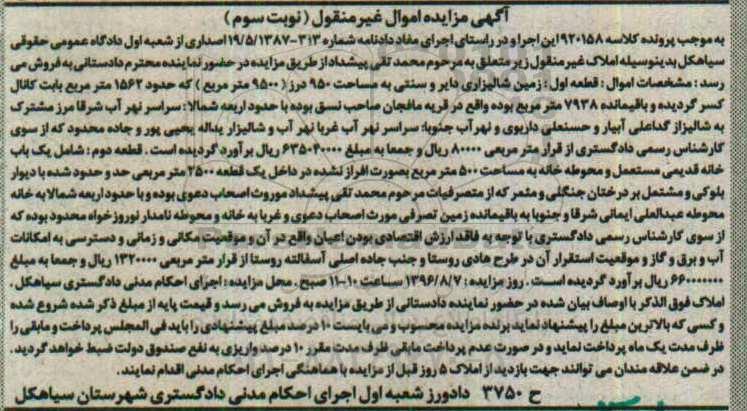 آگهی مزایده اموال غیرمنقول ( نوبت سوم )
به موجب پرونده کلاسه ۹۲۰۱۵۸ این اجرا و در راستای اجرای مفاد دادنامه شماره ۳۱۳-۱۹/۵/۱۳۸۷ اصداری از شعبه اول دادگاه عمومی حقوقی
سیاهکل بدینوسیله املاک غیر منقول زیر متعلق به مرحوم محمد تقی پیشداد از طریق مزایده در حضور نماینده محترم دادستانی به فروش می
رسد : مشخصات اموال : قطعه اول : زمین شالیزاری دایر و سنتی به مساحت ۹۵۰ درز ( ۹۵۰۰ متر مربع ) که حدود ۱۵۶۲ متر مربع بابت کانال
کسر گردیده و باقیمانده ۷۹۳۸ متر مربع بوده واقع در قریه مافجان صاحب نسق بوده با حدود اربعه شمالا : سراسر نهر آب شرقا مرز مشترک
به شالیزار گداعلی آبیار و حسنعلی داریوی و نهر آب جنوبا: سراسر نهر آب غربا نهر آب و شالیزار یداله یحیی پور و جاده محدود که از سوی
کارشناس رسمی دادگستری از قرار متر مربعی ۸۰۰۰۰ ریال و جمعا به مبلغ ۶۳۵۰۴۰۰۰۰ ریال برآورد گردیده است . قطعه دوم : شامل یک باب
خانه قدیمی مستعمل و محوطه خانه به مساحت ۵۰۰ متر مربع بصورت افراز نشده در داخل یک قطعه ۲۵۰۰ متر مربعی حد و حدود شده با دیوار
بلوکی و مشتمل بر درختان جنگلی و مثمر که از متصرفیات مرحوم محمد تقی پیشداد موروث اصحاب دعوی بوده و با حدود اربعه شمالا به خانه
محوطه عبدالعلی ایمانی شرقا و جنوبا به باقیمانده زمین تصرفی مورث اصحاب دعوی و غربا به خانه و محوطه نامدار نوروز خواه محدود بوده که
از سوی کارشناس رسمی دادگستری با توجه به فاقد ارزش اقتصادی بودن اعیان واقع در آن و موقعیت مکانی و زمانی و دسترسی به امکانات
آب و برق و گاز و موقعیت استقرار آن در طرح هادی روستا و جنب جاده اصلی آسفالته روستا از قرار متر مربعی ۱۳۲۰۰۰۰ ریال و جمعا به مبلغ
۶۶۰۰۰۰۰۰۰ ریال برآورد گردیده است . روز مزایده : ۱۳۹۶/۸/۷ ساعت ۱۰-۱۱ صبح . محل مزایده : اجرای احکام مدنی دادگستری سیاهکل .
املاک فوق الذکر با اوصاف بیان شده در حضور نماینده دادستانی از طریق مزایده به فروش می رسد و قیمت پایه از مبلغ ذکر شده شروع شده
و کسی که بالاترین مبلغ را پیشنهاد نماید برنده مزایده محسوب و می بایست ۱۰ درصد مبلغ پیشنهادی را باید فی المجلس پرداخت و مابقی را
ظرف مدت یک ماه پرداخت نماید و در صورت عدم پرداخت مابقی ظرف مدت مقرر ۱۰ درصد واریزی به نفع صندوق دولت ضبط خواهد گردید .
در ضمن علاقه مندان می توانند جهت بازدید از املاک ۵ روز قبل از مزایده با هماهنگی اجرای احکام مدنی اقدام نمایند.
ح ۳۷۵۰ دادورز شعبه اول اجرای احکام مدنی دادگستری شهرستان سیاهکل